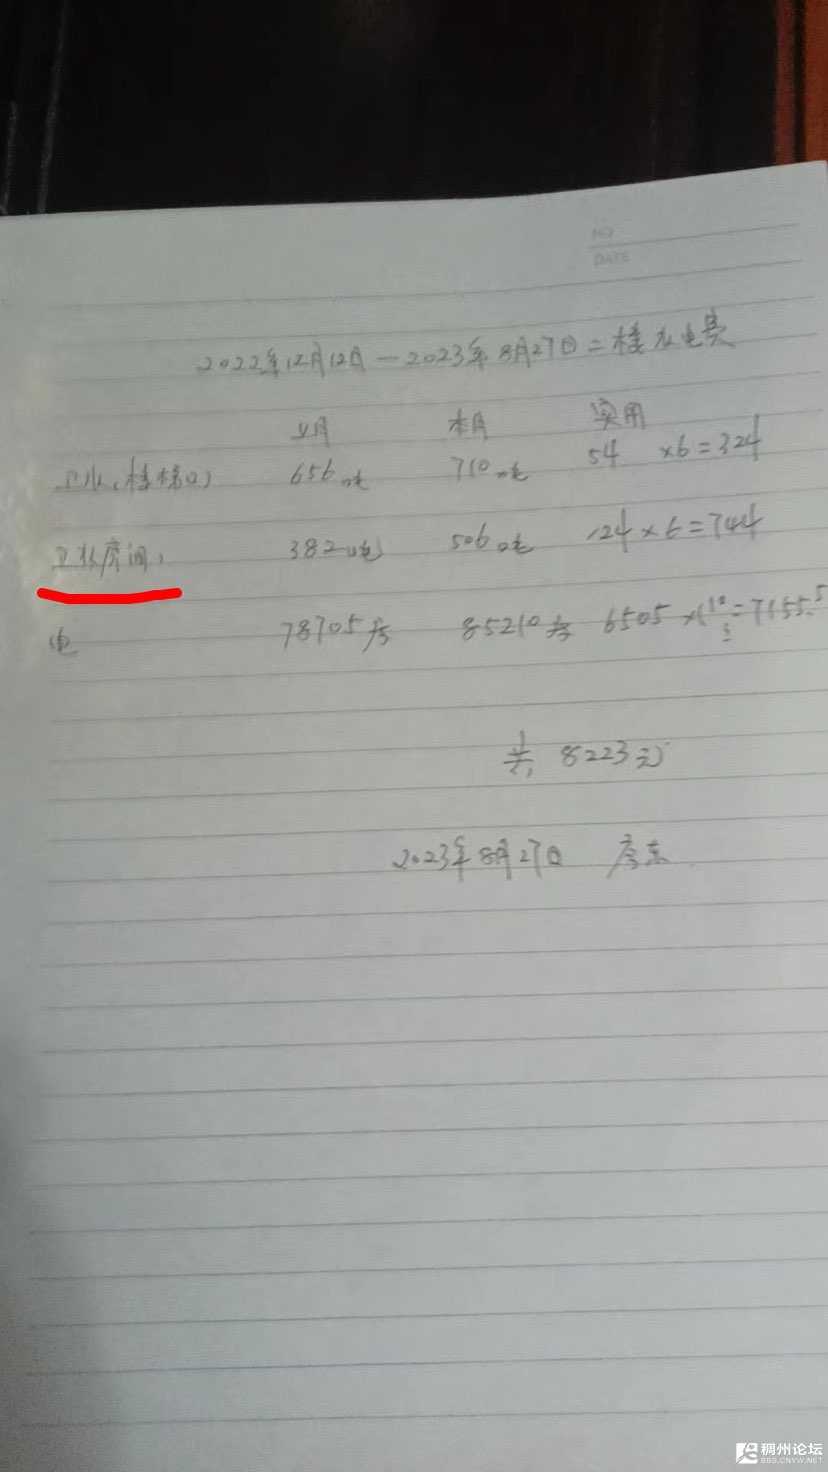 NO
DATE
2022年12月12日—2023年8月27日二楼水电费
上月 本月 实用
卫水(楼梯口) 656吨 710吨 54 ×6=324
卫水房间, 382吨 506吨 124×6=744
电 78705度 85210度 6505 ×1.10=7155.5
共 8223元
2023年8月27日 房东
稠州论坛
BBS.CNYW.NET